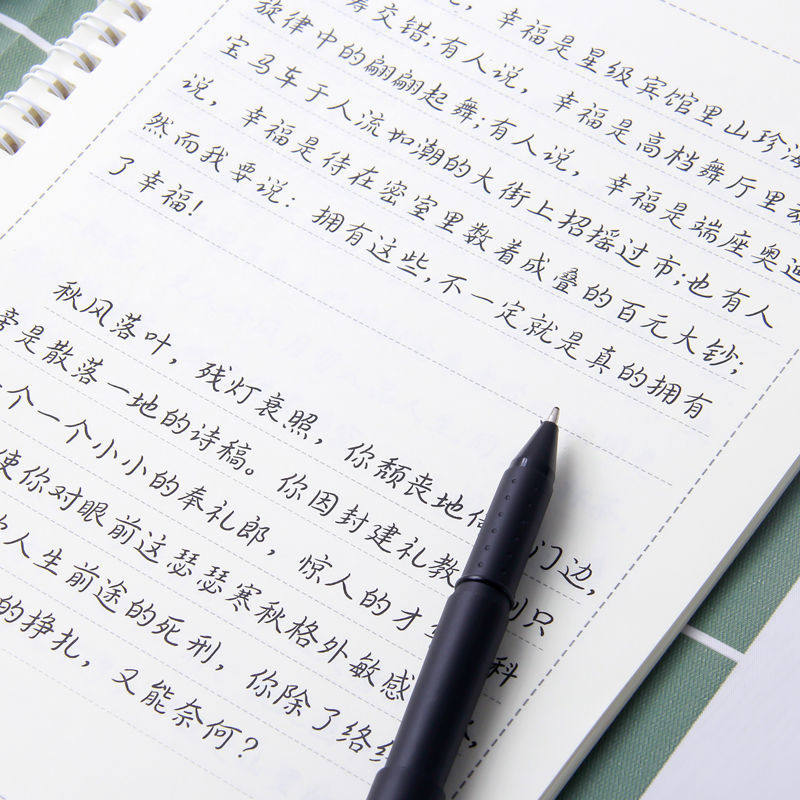 ，幸福是星级宾馆里山珍海
筹交错;有人说，幸福是高档舞厅里
旋律中的翩翩起舞;有人说，幸福是端座奥迪
宝马车于人流如潮的大街上招摇过市;也有人
说，幸福是待在密室里数着成叠的百元大钞;
然而我要说：拥有这些,不一定就是真的拥有
了幸福!
秋风落叶，残灯衰照，你颓丧地 门边,
旁是散落一地的诗稿。你因封建礼教 只
一个一个小小的奉礼郎，惊人的才 科
使你对眼前这瑟瑟寒秋格外敏感
人生前途的死刑，你除了络
的挣扎，又能奈何?